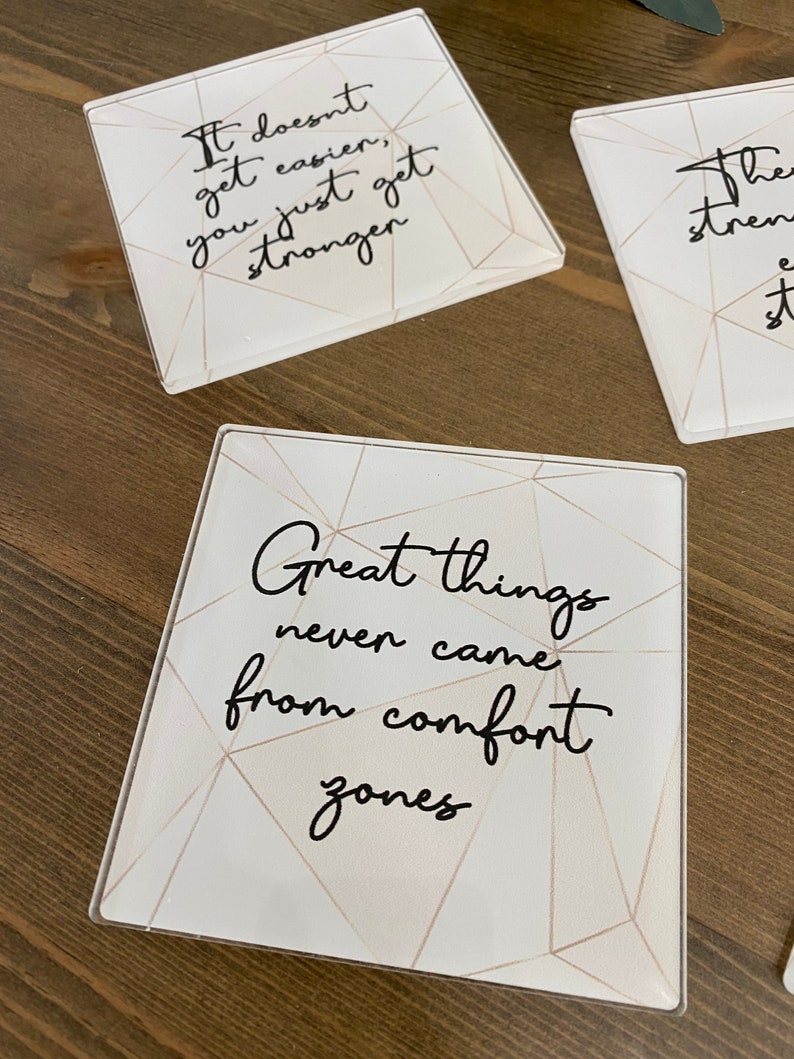 It doesnt
get easier,
you just get
stronger
Great things
never came
from comfort
zones